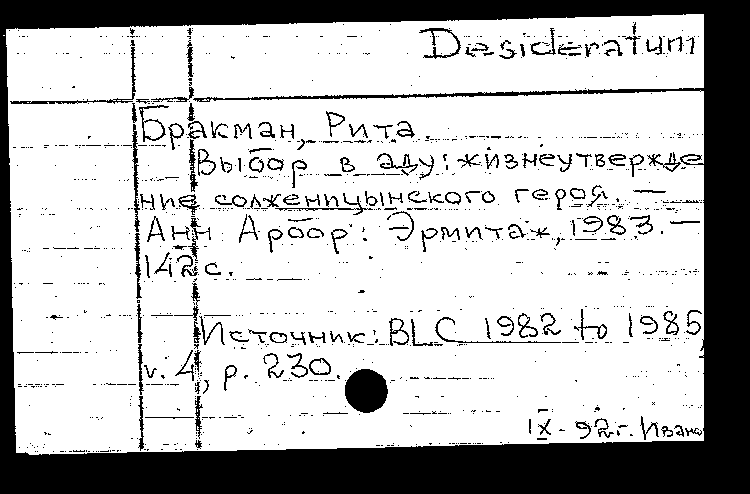 Desideratum
Бракман, Рита.
Выбор в аду: жизнеутвержде
ние солженицынского героя. —
Анн Арбор: Эрмитаж, 1983. —
142 с.
Источник: BLC 1982 to 1985,
v. 4, p. 230.
IX - 92 г. Ивано